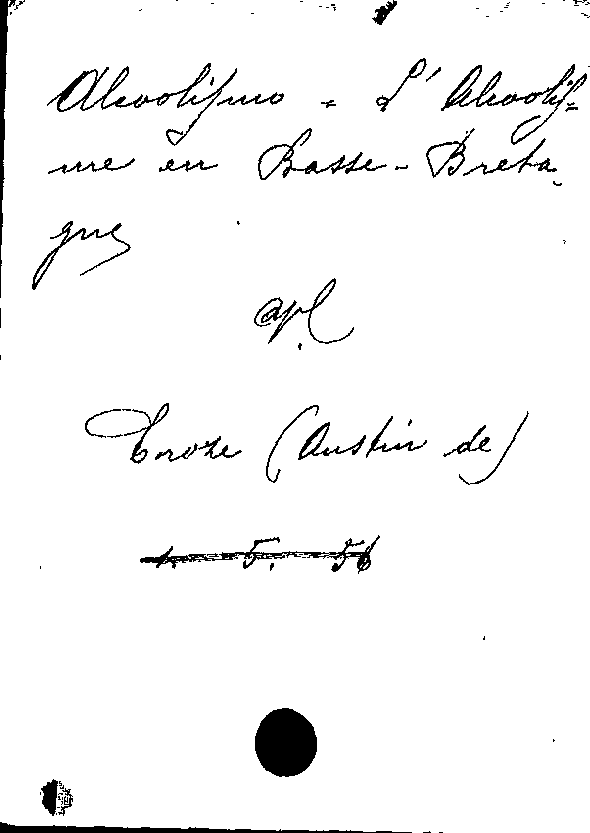 Alcoolismo = L'Alcoolis-
me en Basse-Breta-
gne
apl.
Croze (Austin de)
1. 5. 56